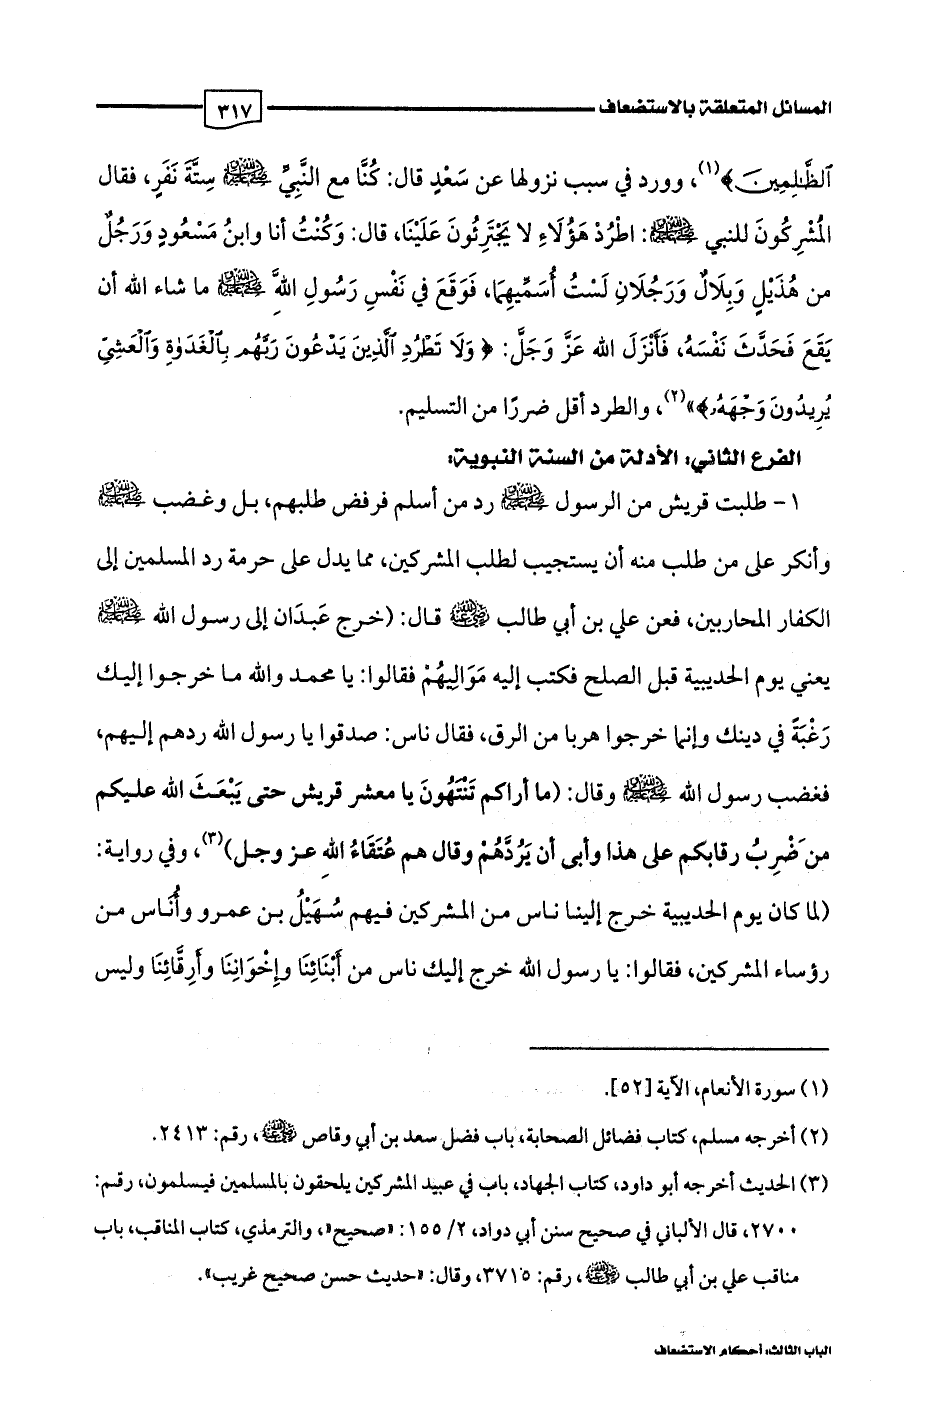 المسائل المتعلقة بالاستضعاف ٣١٧
ٱلظَّٰلِمِينَ﴾(١)، وورد في سبب نزولها عن سَعْدٍ قال: كُنَّا مع النَّبِيِّ ﷺ سِتَّةَ نَفَرٍ، فقال
المُشْرِكُونَ للنبي ﷺ: اطْرُدْ هَؤُلَاءِ لا يَجْتَرِئُونَ عَلَيْنَا، قال: وَكُنْتُ أنا وابنُ مَسْعُودٍ وَرَجُلٌ
من هُذَيْلٍ وَبِلَالٌ وَرَجُلَانِ لَسْتُ أُسَمِّيهِمَا، فَوَقَعَ في نَفْسِ رَسُولِ اللَّهِ ﷺ ما شاء الله أن
يَقَعَ فَحَدَّثَ نَفْسَهُ، فَأَنْزَلَ الله عَزَّ وَجَلَّ: ﴿ وَلَا تَطْرُدِ ٱلَّذِينَ يَدْعُونَ رَبَّهُم بِٱلْغَدَوٰةِ وَٱلْعَشِيِّ
يُرِيدُونَ وَجْهَهُۥ﴾»(٢)، والطرد أقل ضررًا من التسليم.
الفرع الثاني: الأدلة من السنة النبوية:
١- طلبت قريش من الرسول ﷺ رد من أسلم فرفض طلبهم، بل وغضب ﷺ
وأنكر على من طلب منه أن يستجيب لطلب المشركين، مما يدل على حرمة رد المسلمين إلى
الكفار المحاربين، فعن علي بن أبي طالب ﵁ قال: (خرج عَبدَان إلى رسول الله ﷺ
يعني يوم الحديبية قبل الصلح فكتب إليه مَوَالِيهُمْ فقالوا: يا محمد والله ما خرجوا إليك
رَغْبَةً في دينك وإنما خرجوا هربا من الرق، فقال ناس: صدقوا يا رسول الله ردهم إليهم،
فغضب رسول الله ﷺ وقال: (ما أراكم تَنْتَهُونَ يا معشر قريش حتى يَبْعَثَ الله عليكم
من َضْرِبُ رقابكم على هذا وأبى أن يَرُدَّهُمْ وقال هم عُتَقَاءُ اللَّهِ عز وجل)(٣)، وفي رواية:
(لما كان يوم الحديبية خرج إلينا ناس من المشركين فيهم سُهَيْلُ بن عمرو وأُنَاس من
رؤساء المشركين، فقالوا: يا رسول الله خرج إليك ناس من أَبْنَائِنَا وإِخْوَانِنَا وأَرِقَّائِنَا وليس
(١) سورة الأنعام، الآية [٥٢].
(٢) أخرجه مسلم، كتاب فضائل الصحابة، باب فضل سعد بن أبي وقاص ﵁، رقم: ٢٤١٣.
(٣) الحديث أخرجه أبو داود، كتاب الجهاد، باب في عبيد المشركين يلحقون بالمسلمين فيسلمون، رقم:
٢٧٠٠، قال الألباني في صحيح سنن أبي دواد، ٢/ ١٥٥: «صحيح»، والترمذي، كتاب المناقب، باب
مناقب علي بن أبي طالب ﵁، رقم: ٣٧١٥، وقال: «حديث حسن صحيح غريب».
الباب الثالث: أحكام الاستضعاف